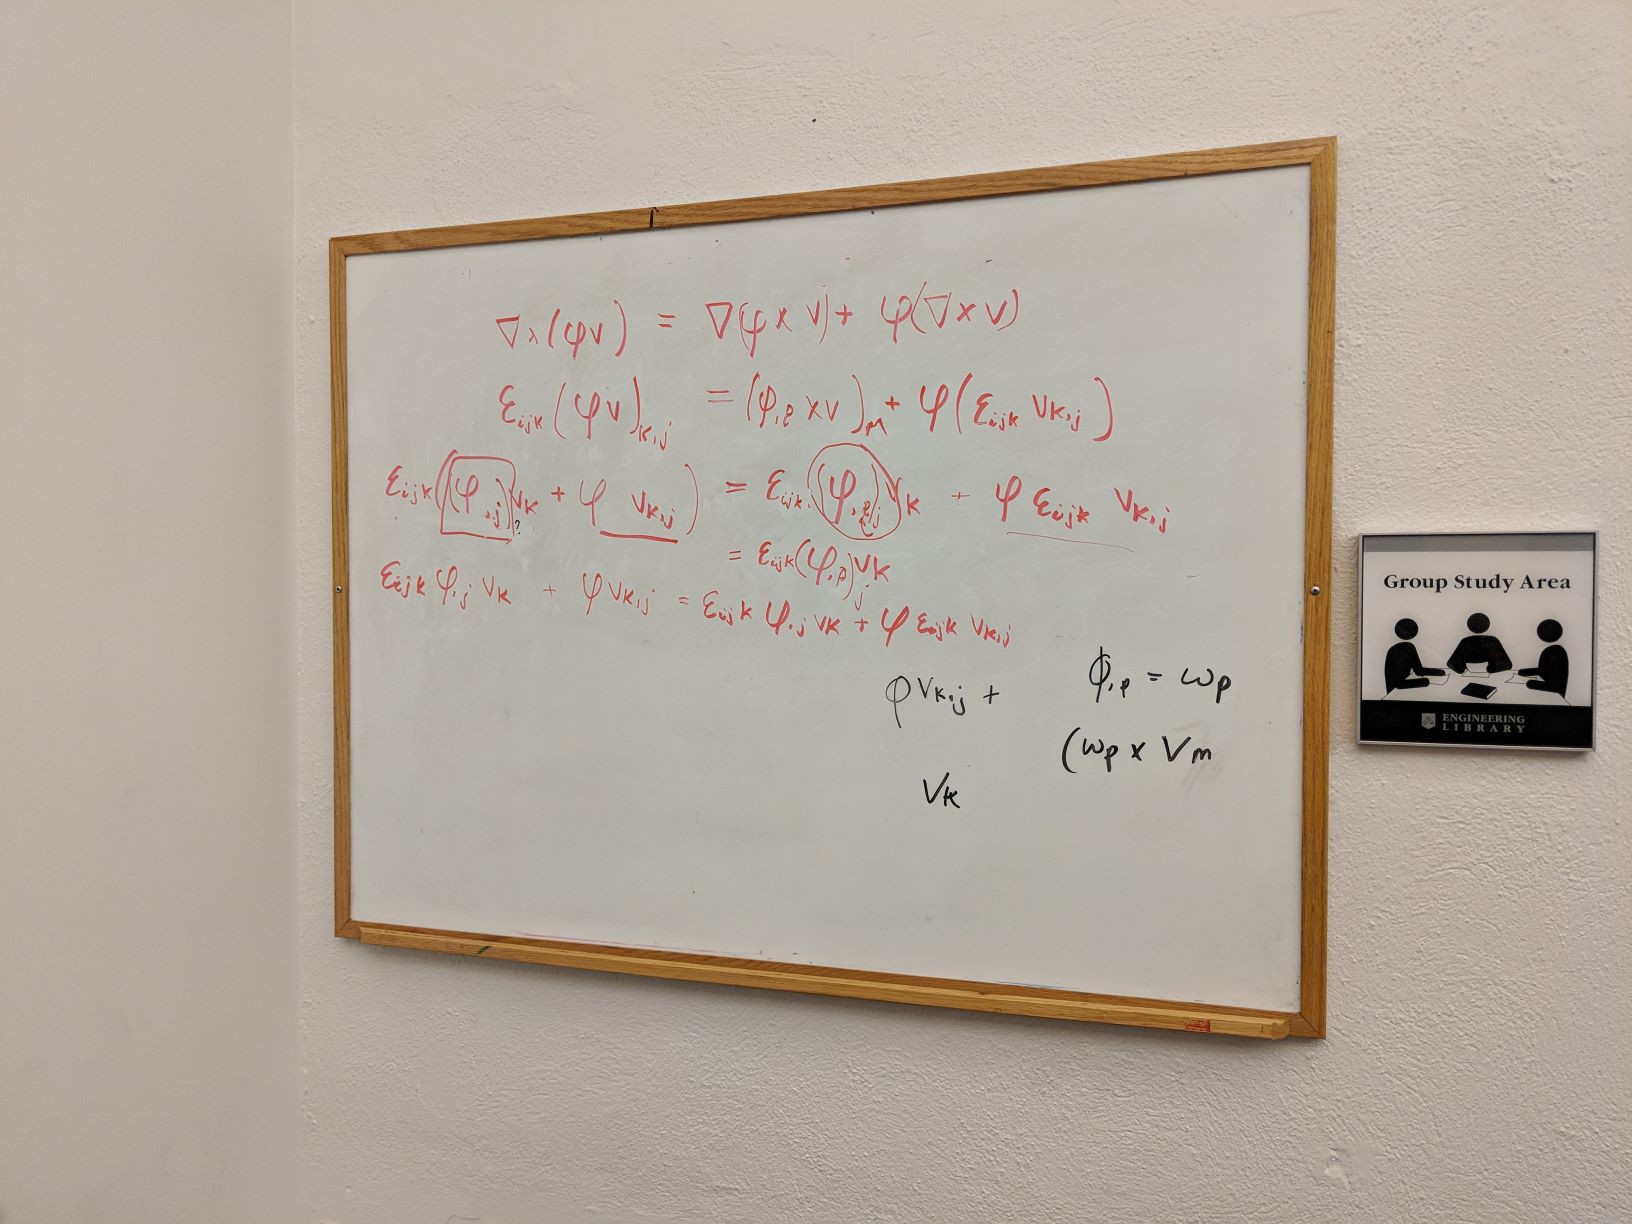 ∇×(φv) = ∇(φ × v) + φ(∇×v)
εijk(φv)k,j = (φ,p × v)m + φ(εijk vk,j)
εijk((φ,j)vk + φ vk,j) = εijk (φ,p)j vk + φ εijk vk,j
?
= εijk(φ,p)j vk
εijk φ,j vk + φ vk,j = εijk φ,j vk + φ εijk vk,j
φ vk,j +
ϕ,p = ωp
(ωp × Vm
Vk
Group Study Area
ENGINEERING
LIBRARY